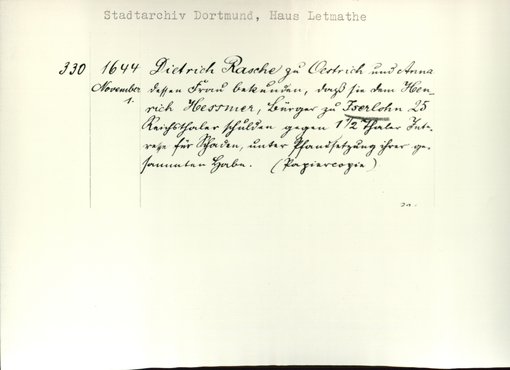 Stadtarchiv Dortmund, Haus Letmathe
330 1644 Dietrich Rasche zu Oestrich und Anna
November dessen Frau bekunden, daß sie dem Hen-
1. rich Hessmer, Bürger zu Iserlohn 25
Reichsthaler schulden gegen 1 1/2 Thaler Int-
resse für Schaden, unter Pfandsetzung ihrer ge-
sammten Habe. (Papiercopie)